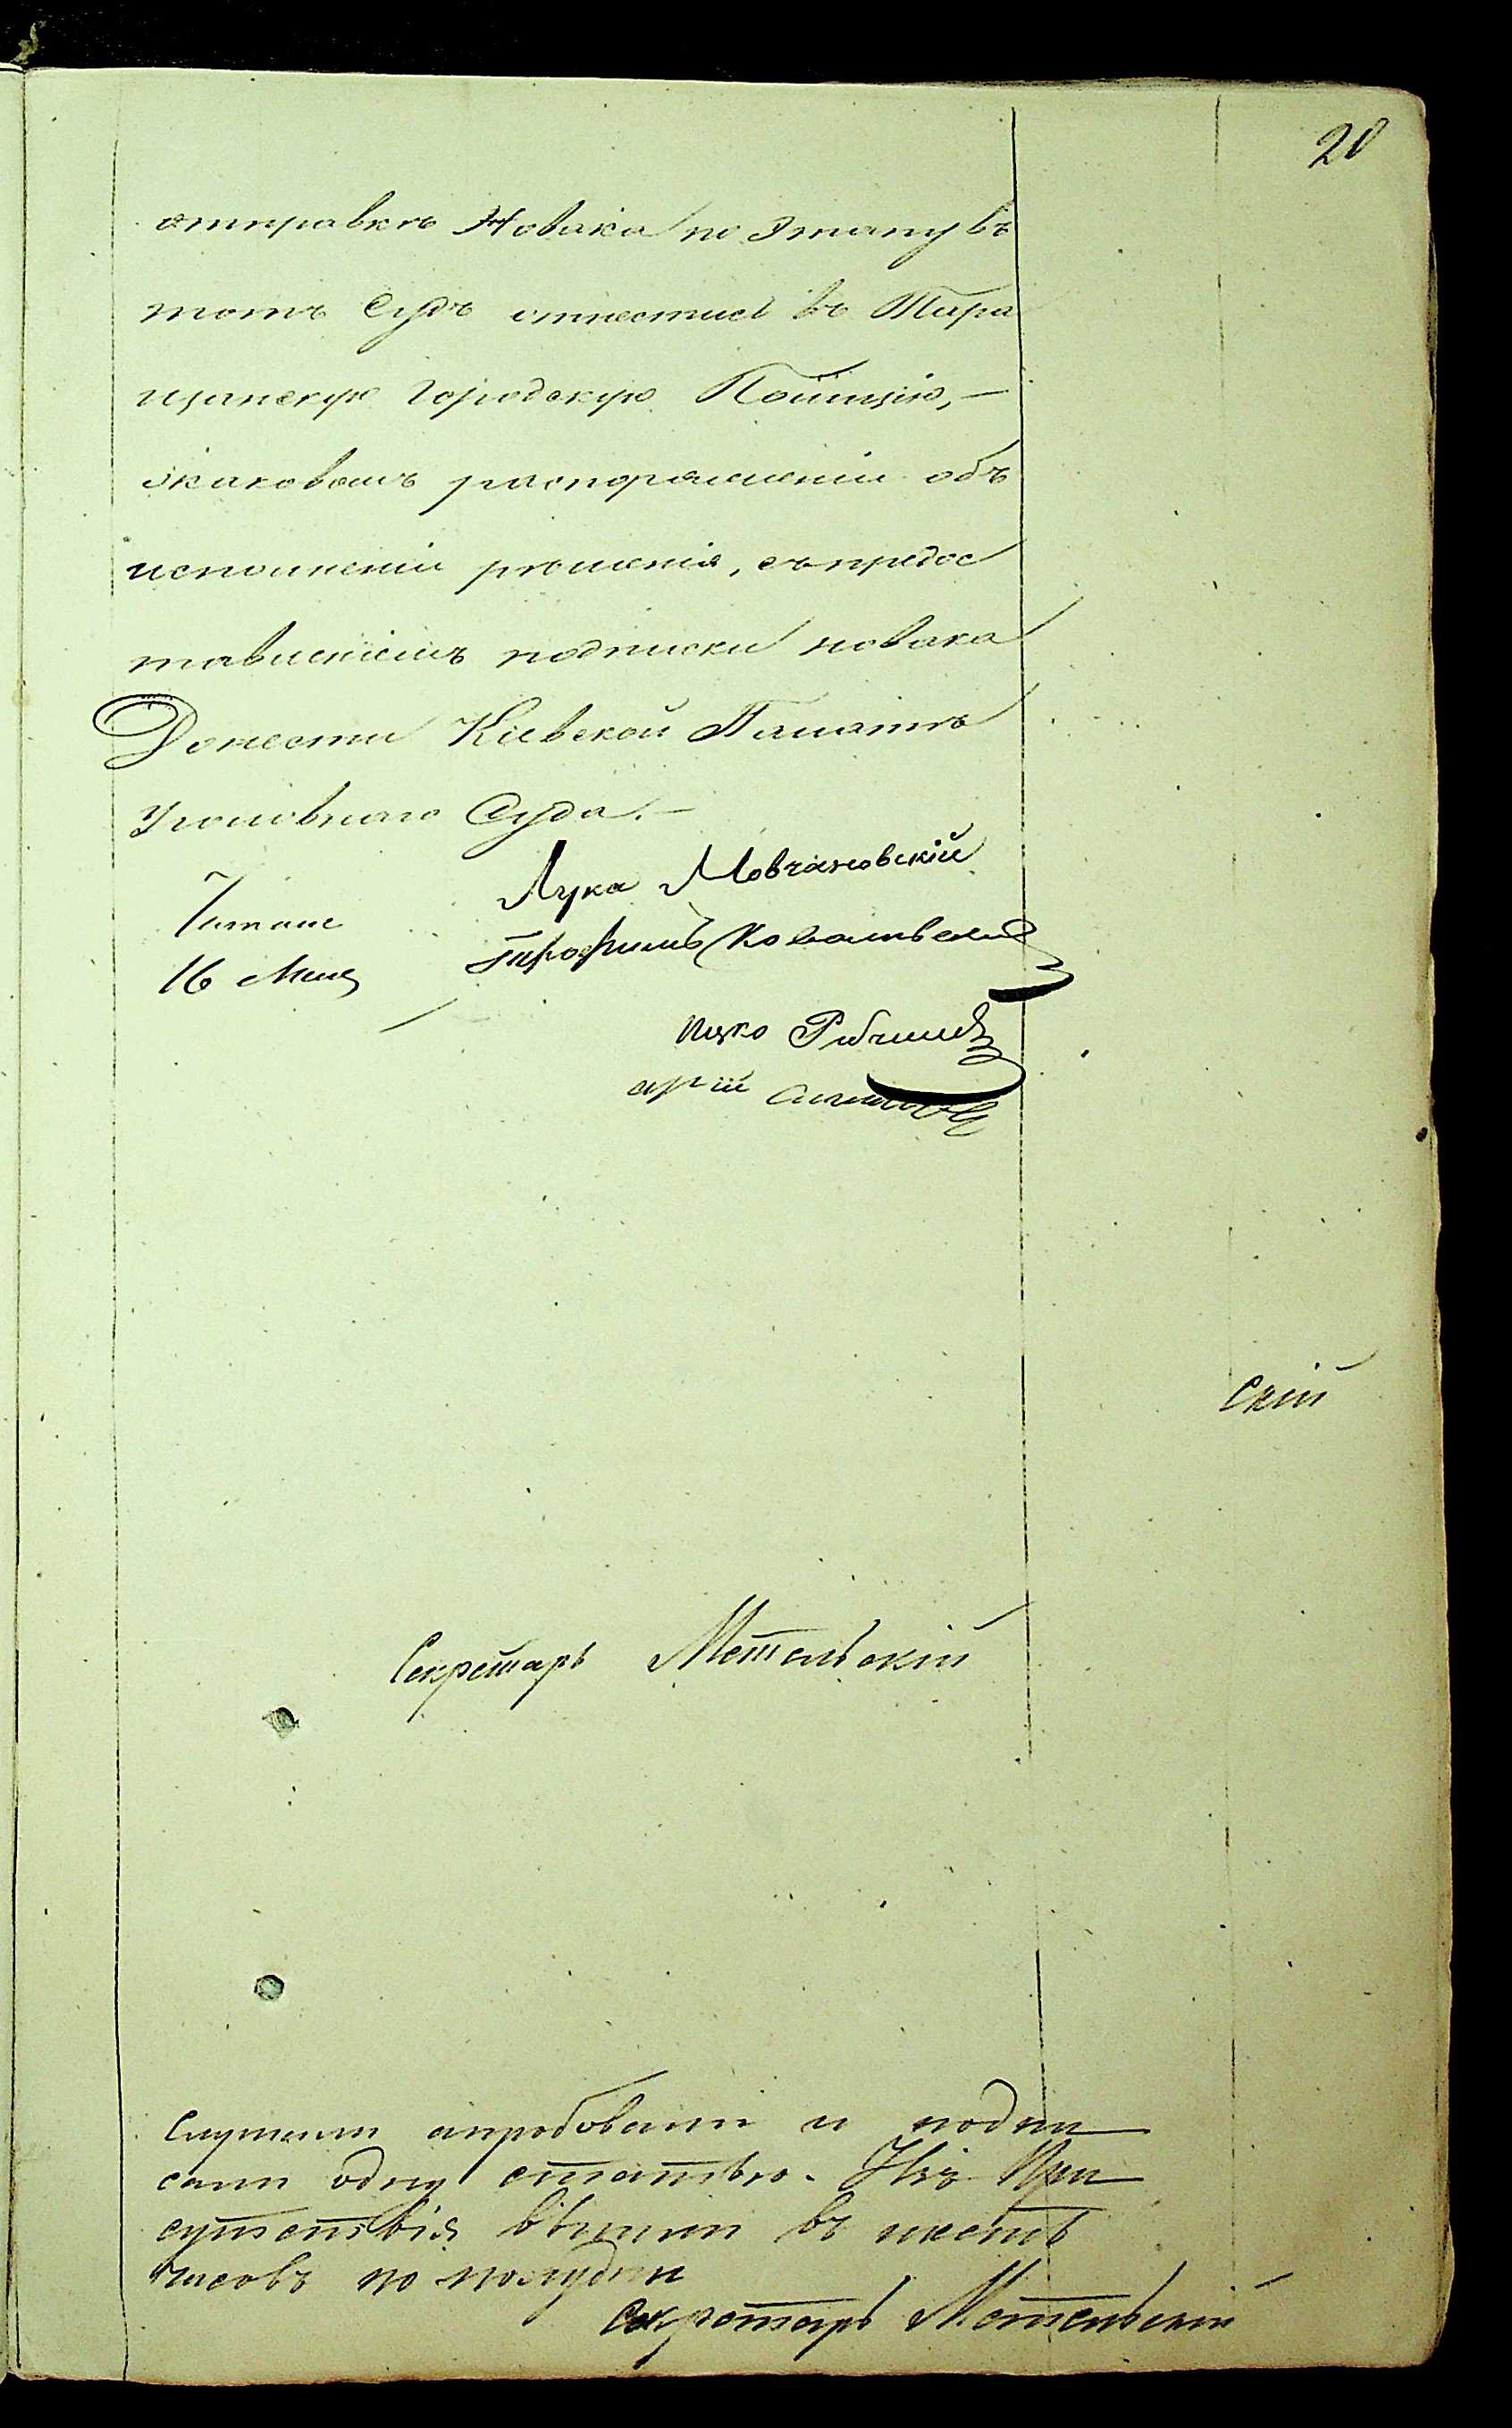 20
отправкѣ Новака по Этапу въ
тотъ Судъ отнестись въ Тара
щанскую Городскую Полицію, —
окаковомъ распоряженіи объ
исполненіи рѣшенія, съ предос
тавленіемъ подписки новака
Донести Кіевской Палатѣ
Уголовнаго Суда. —
Лука Мовчановскій
Читано
Трофимъ Ковальскій
16 Мая
ицко
скій
Секретарь Метельскій
Слушали апробовали и подпи
сали одну статью. Изъ При
сутствія вышли въ шесть
часовъ по полудни
Секретарь Метельскій